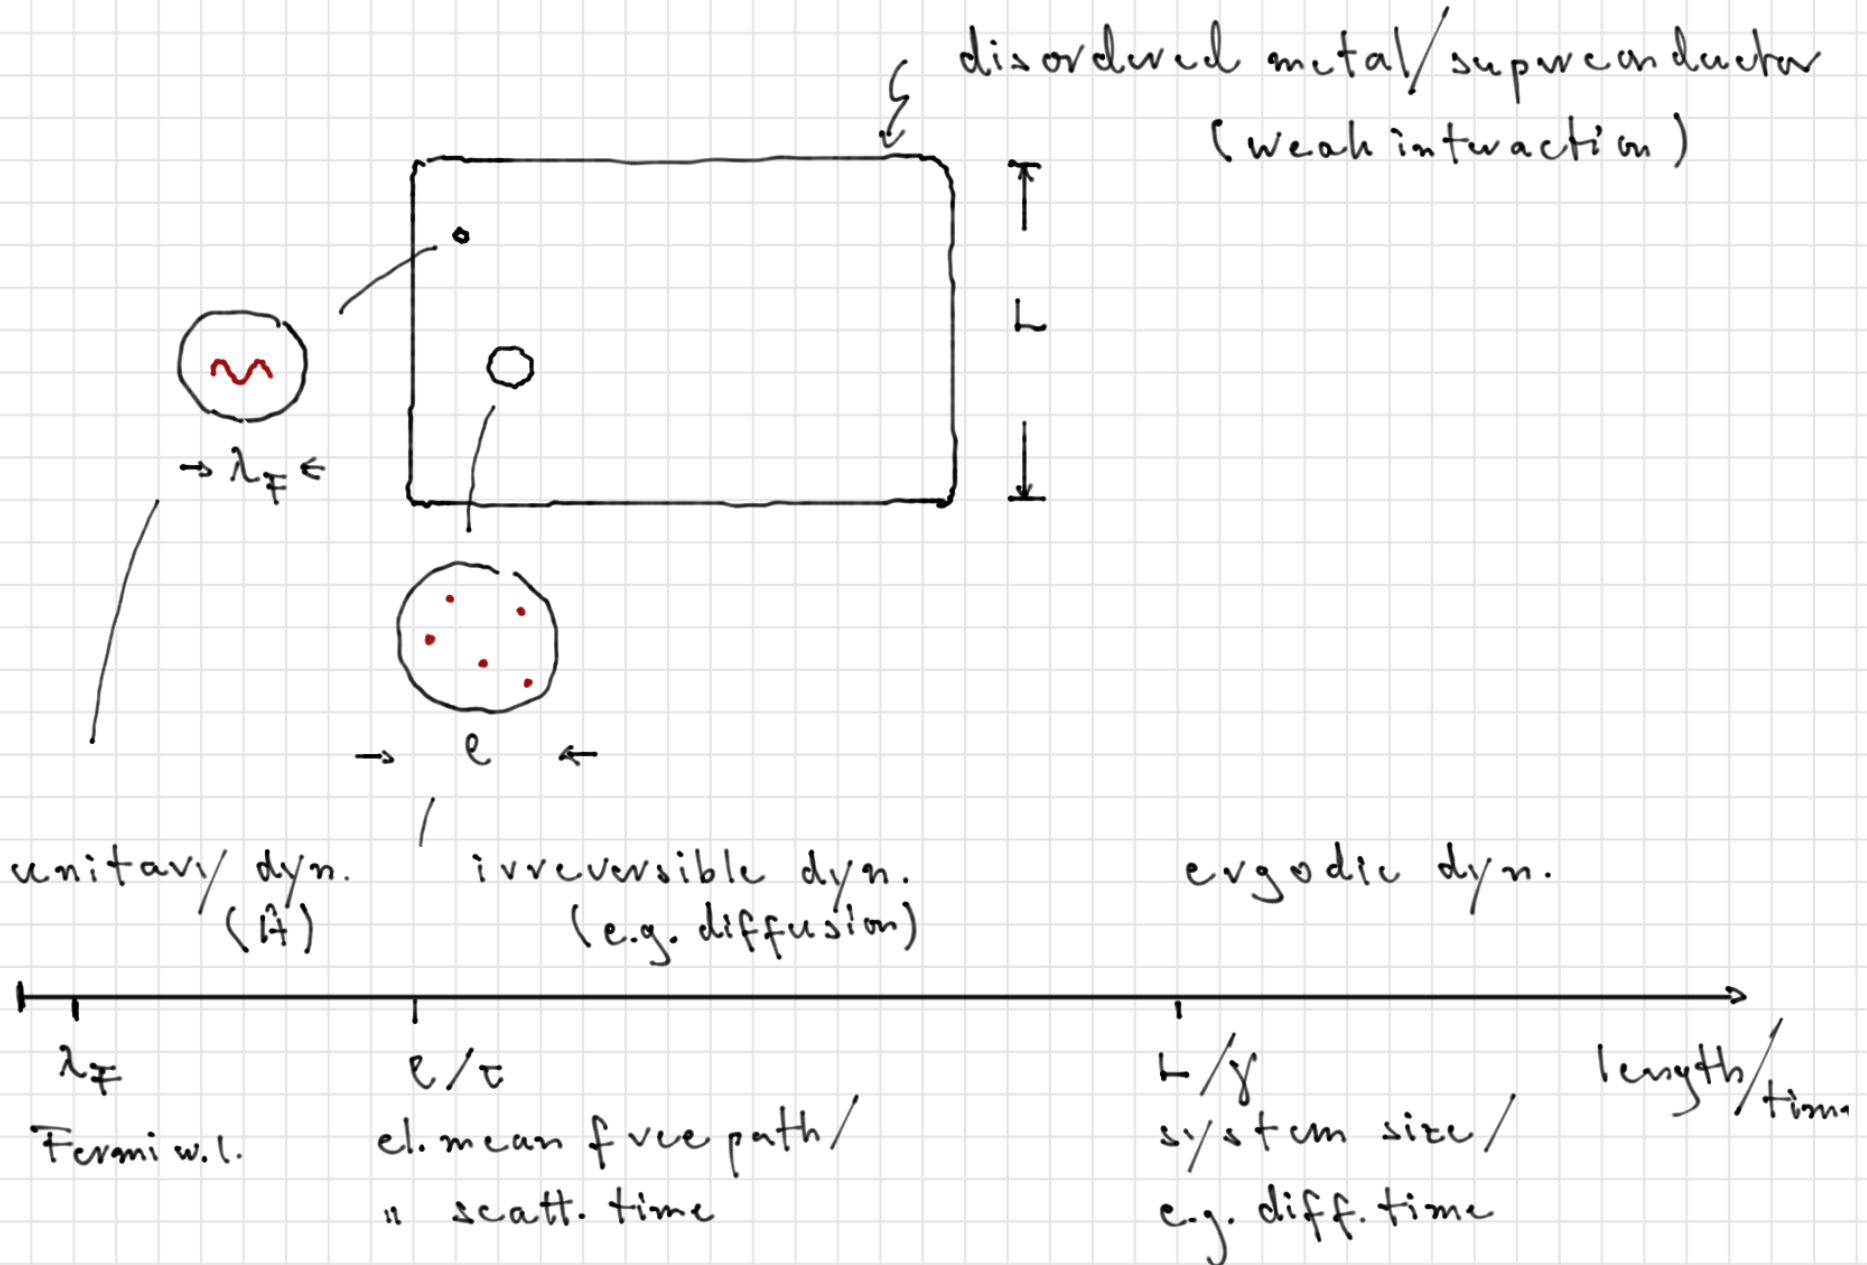 disordered metal/superconductor
(weak interaction)
L
λ_F
ℓ
unitary dyn.
(Ĥ)
irreversible dyn.
(e.g. diffusion)
ergodic dyn.
λ_F
ℓ/τ
L/γ
length/time
Fermi w.l.
el. mean free path/
" scatt. time
system size/
e.g. diff. time